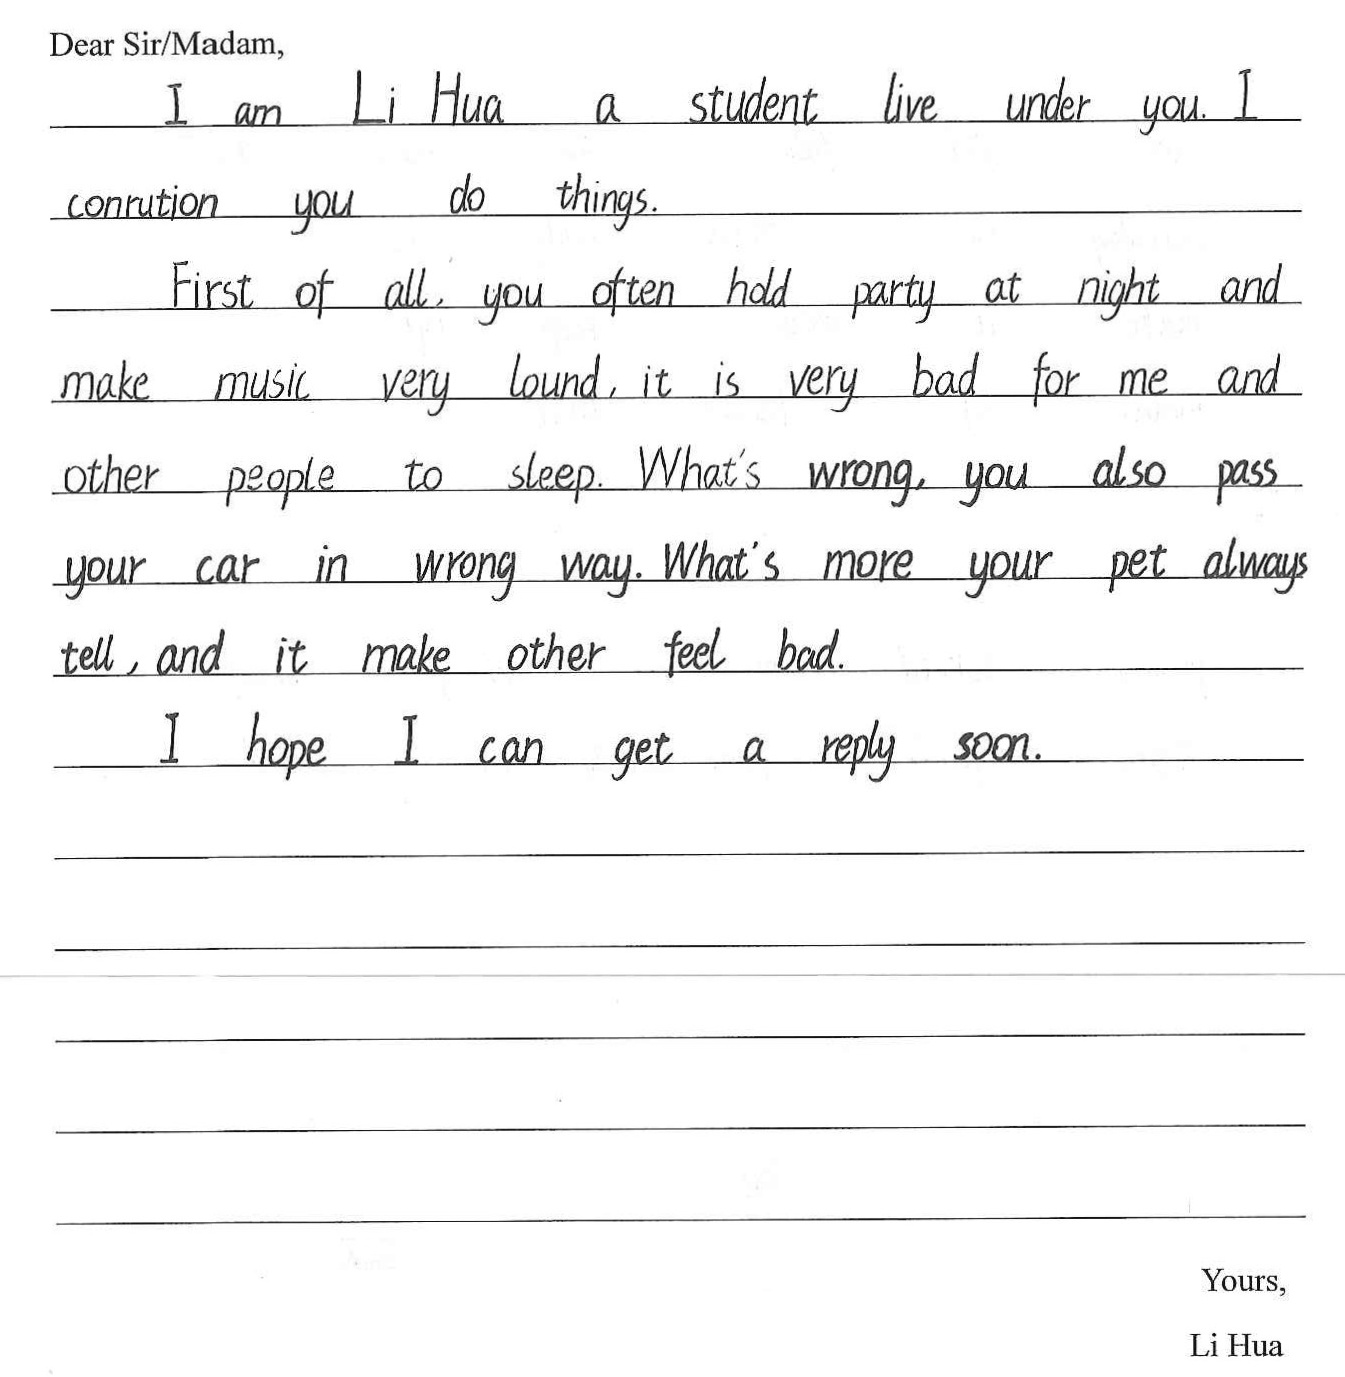 Dear Sir/Madam,
I am Li Hua a student live under you. I
conrution you do things.
First of all, you often hold party at night and
make music very lound, it is very bad for me and
other people to sleep. What's wrong, you also pass
your car in wrong way. What's more your pet always
tell, and it make other feel bad.
I hope I can get a reply soon.
Yours,
Li Hua